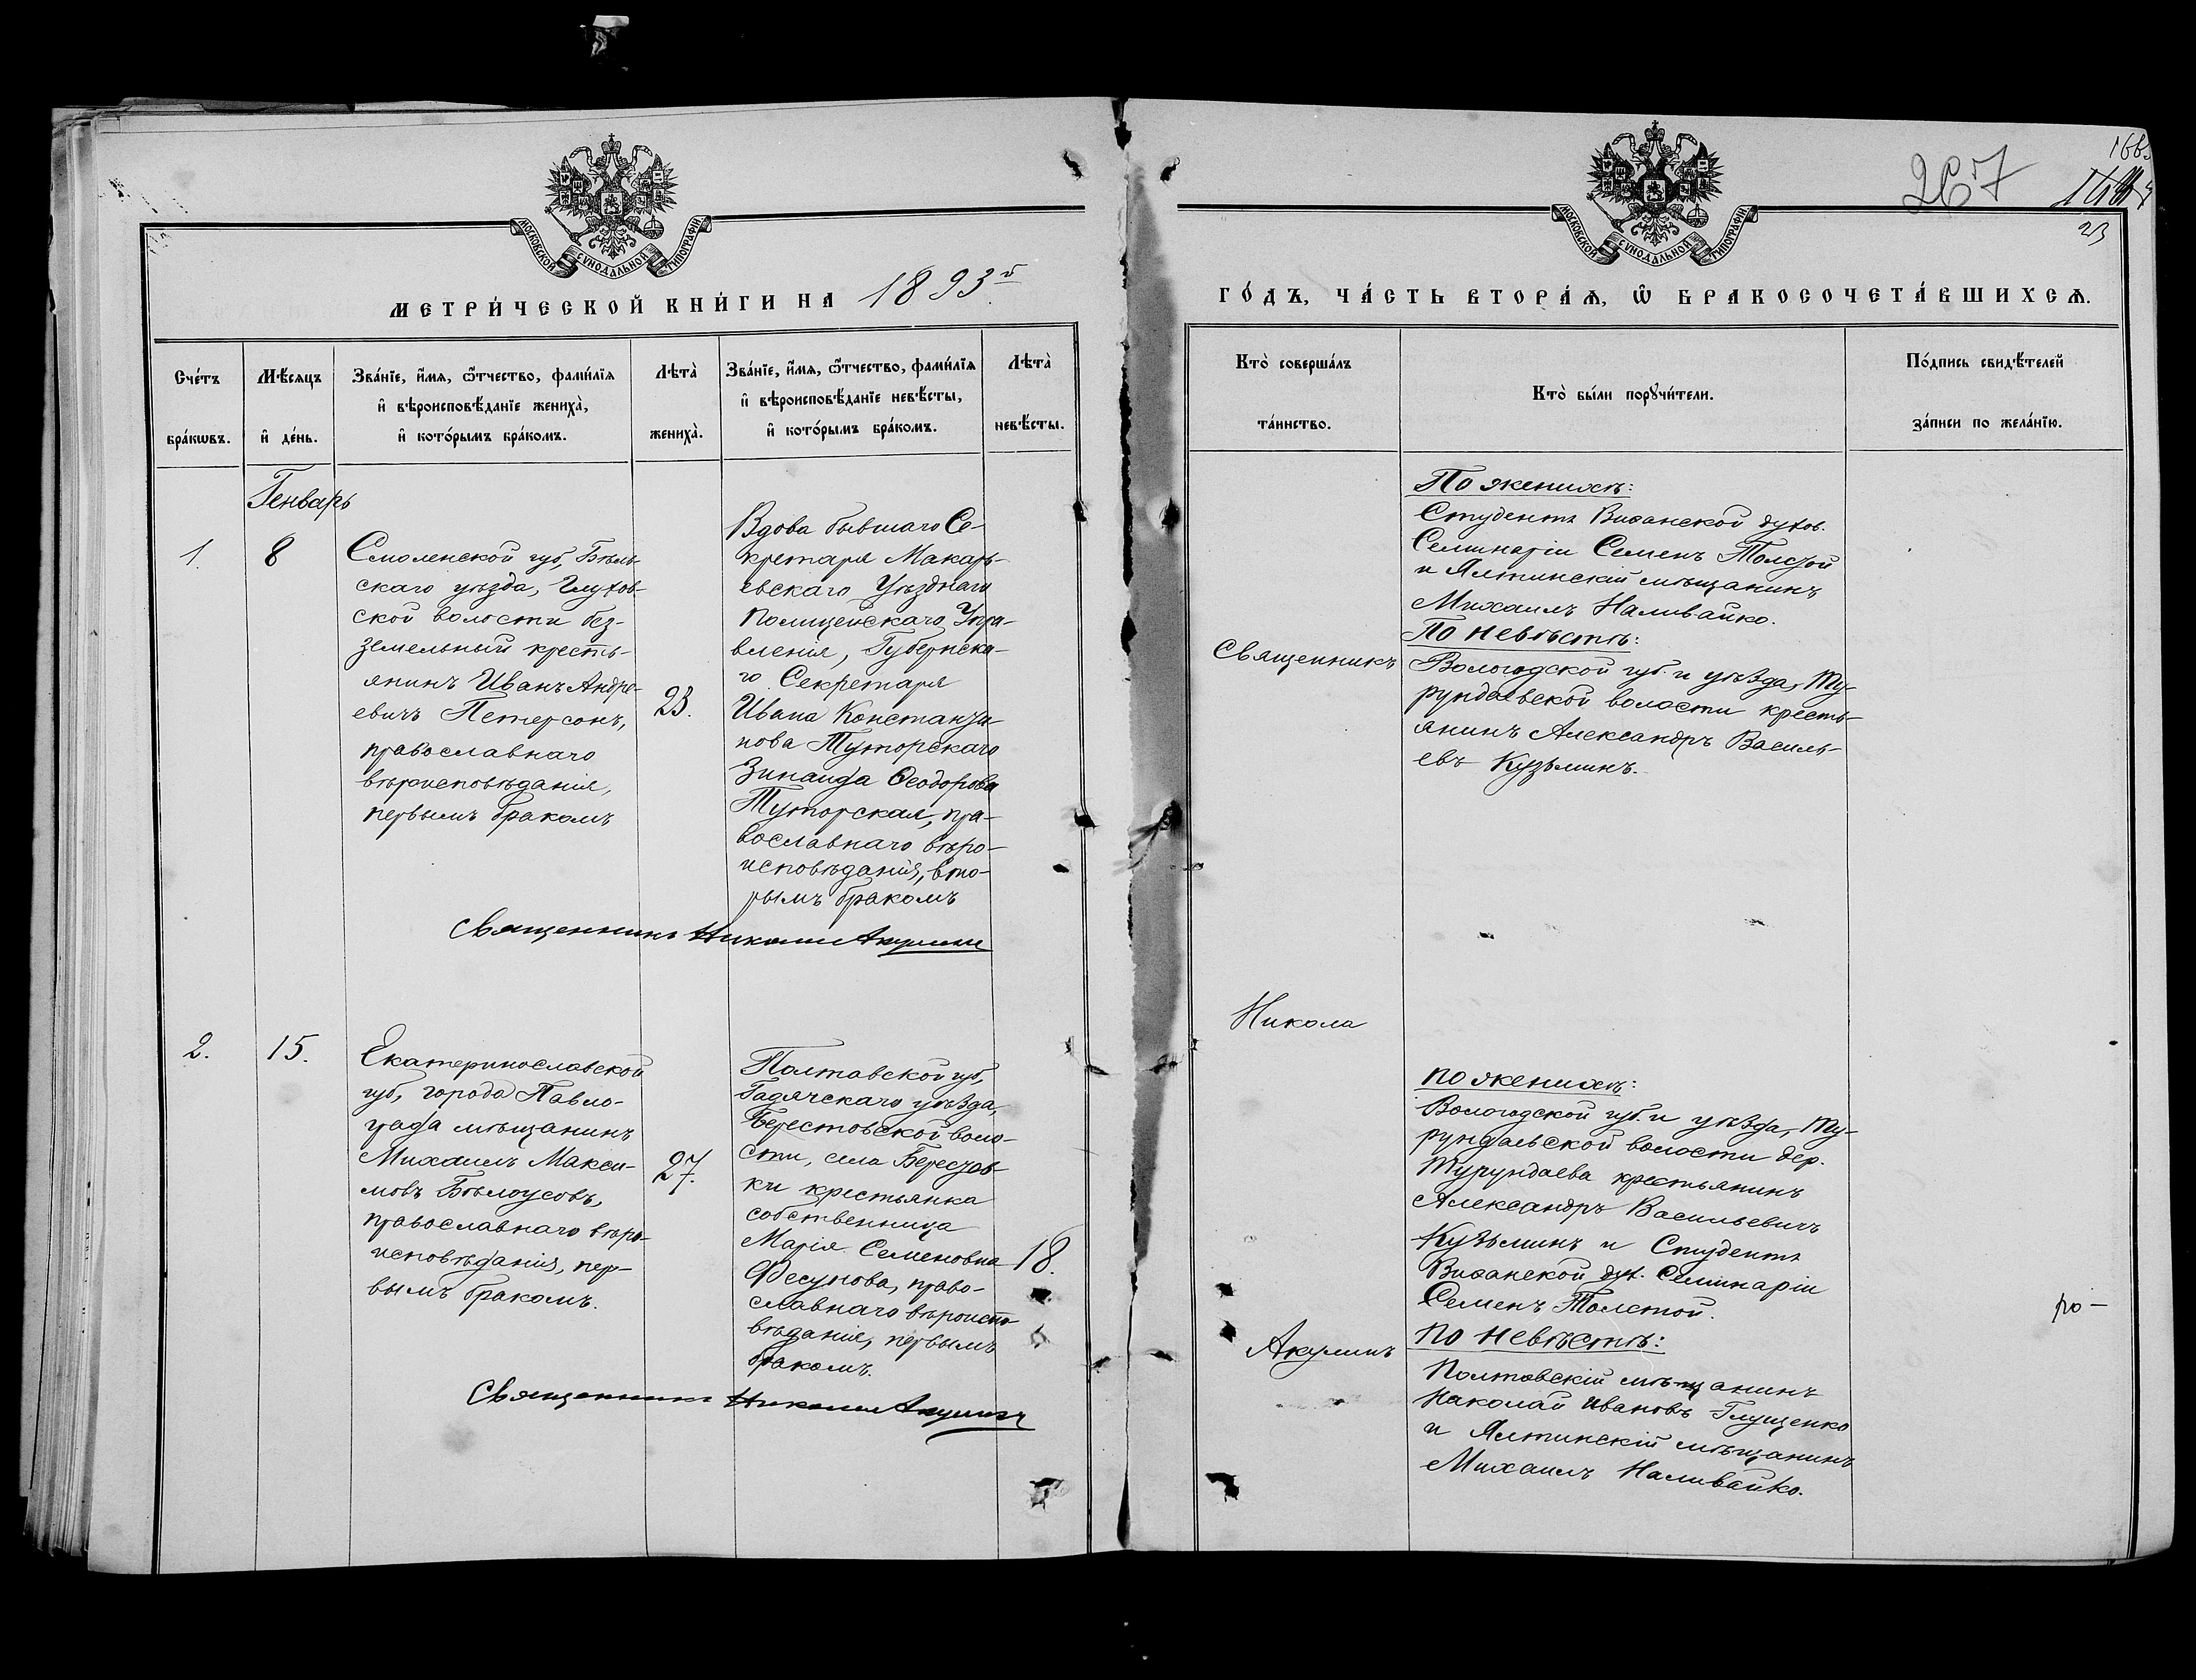 267
МОСКОВСКОЙ СѴНОДАЛЬНОЙ ТИПОГРАФІИ
МОСКОВСКОЙ СѴНОДАЛЬНОЙ ТИПОГРАФІИ
23
МЕТРИ́ЧЕСКОЙ КНИ́ГИ НА 1893й
ГО́ДЪ, ЧА́СТЬ ВТОРА́Ѧ, Ѽ БРАКОСОЧЕТА́ВШИХСѦ.
Сче́тъ
бра́кѡвъ.
Мѣ́сѧцъ
и҆ де́нь.
Зва́нїе, и҆́мѧ, ѻ҆́тчество, фами́лїѧ
и҆ вѣроисповѣ́данїе жениха̀,
и҆ кото́рымъ бра́комъ.
Лѣта̀
жениха̀.
Зва́нїе, и҆́мѧ, ѻ҆́тчество, фами́лїѧ
и҆ вѣроисповѣ́данїе невѣ́сты,
и҆ кото́рымъ бра́комъ.
Лѣта̀
невѣ́сты.
Кто̀ соверша́лъ
та́инство.
Кто̀ бы́ли порꙋчи́тели.
По́дпись свидѣ́телей
за́писи по жела́нїю.
Генварь
1.
8
Смоленской губ, Бѣль-
скаго уѣзда, Глухов-
ской волости без-
земельный кресть-
янинъ Иванъ Андре-
евичъ Петерсонъ,
православнаго
вѣроисповѣданія,
первымъ бракомъ
23.
Вдова бывшаго Се-
кретаря Макарь-
евскаго Уѣзднаго
Полицейскаго Упра-
вленія, Губернска-
го Секретаря
Ивана Константи-
нова Туторскаго
Зинаида Ѳеодорова
Туторская, пра-
вославнаго вѣро-
исповѣданія, вто-
рымъ бракомъ
Священникъ Николай Акулинъ
Священникъ
По женихѣ:
Студентъ Виѳанской духов.
Семинаріи Семенъ Толстой
и Ялтинскій мѣщанинъ
Михаилъ Наливайко.
По невѣстѣ:
Вологодской губ. и уѣзда, Ту-
рундаевской волости кресть-
янинъ Александръ Василь-
евъ Кузьминъ.
2.
15.
Екатеринославской
губ, города Павло-
града мѣщанинъ
Михаилъ Макси-
мовъ Бѣлоусовъ,
православнаго вѣро-
исповѣданія, пер-
вымъ бракомъ.
27.
Полтавской губ,
Гадячскаго уѣзда,
Берестовской воло-
сти, села Березов-
ки крестьянка
собственница
Марія Семеновна
Фесунова, право-
славнаго вѣроиспо-
вѣданія, первымъ
бракомъ.
18.
Священникъ Николай Акулинъ
Никола
Акулинъ
по женихѣ:
Вологодской губ. и уѣзда, Ту-
рундаевской волости дер.
Турундаева крестьянинъ
Александръ Васильевичъ
Кузьминъ и Студентъ
Виѳанской дух. Семинаріи
Семенъ Толстой.
по невѣстѣ:
Полтавскій мѣщанинъ
Николай Ивановъ Глущенко
и Ялтинскій мѣщанинъ
Михаилъ Наливайко.